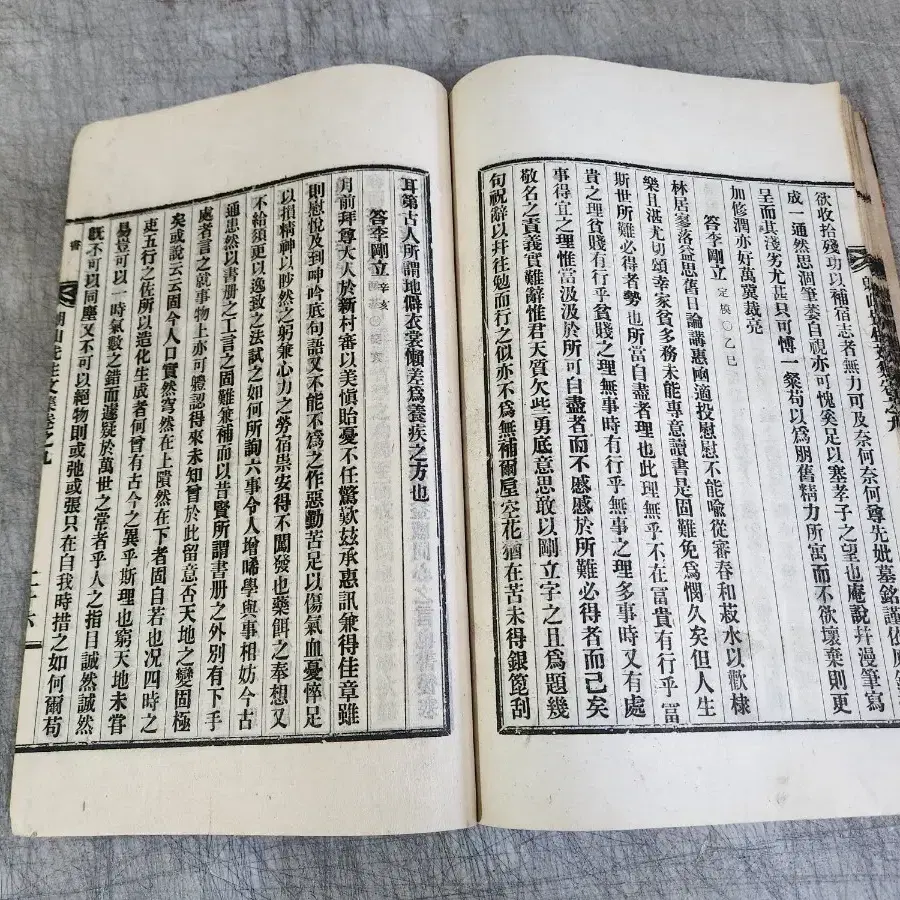 欲收拾殘功以補宿志者無力可及奈何奈何尊先妣墓銘謹依
成一通然思涸筆萎自視亦可愧奚足以塞孝子之望也庵說幷漫筆寫
呈而其淺劣尤甚只可博一粲苟以爲朋舊精力所寓而不欲壞棄則更
加修潤亦好萬冀裁亮
答李剛立 定模○乙巳
林居寥落益思舊日論講惠凾適投慰慰不能喩從審春和菽水以歡棣
樂且湛尤切頌幸家貧多務未能專意讀書是固難免爲憫久矣但人生
斯世所難必得者勢也所當自盡者理也此理無乎不在富貴有行乎富
貴之理貧賤有行乎貧賤之理無事時有行乎無事之理多事時又有處
事得宜之理惟當汲汲於所可自盡者而不慼慼於所難必得者而已矣
敬名之責義實難辭惟君天質欠些勇底意思敢以剛立字之且爲題幾
句祝辭以幷往勉而行之似亦不爲無補爾屋空花猶在苦未得銀篦刮
耳第古人所謂地僻衣裳懶差爲養疾之方也
答李剛立 辛亥
月前拜尊大人於新村審以美愼貽憂不任驚歎玆承惠訊兼得佳章雖
則慰悅及到呻吟底句語又不能不爲之作惡勤苦足以傷氣血憂悴足
以損精神以眇然之躬兼心力之勞宿祟安得不闖發也藥餌之奉想又
不給須更以逸敦之法試之如何所詢六事令人增唏學與事相妨今古
通患然以書册之工言之固難兼補而以昔賢所謂書册之外別有下手
處者言之就事物上亦可體認得來未知曾於此留意否天地之變固極
矣或說云云固今人口實然穹然在上隤然在下者固自若也况四時之
吏五行之佐所以造化生成者何曾有古今之異乎斯理也窮天地未嘗
易豈可以一時氣數之錯而遽疑於萬世之常者乎人之指目誠然誠然
旣不可以同塵又不可以絕物則或弛或張只在自我時措之如何爾苟
山先生文集卷之九
二十六